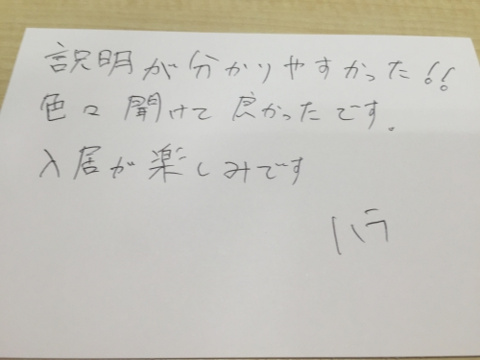 説明が分かりやすかった!!
色々聞けて良かったです。
入居が楽しみです
ハラ